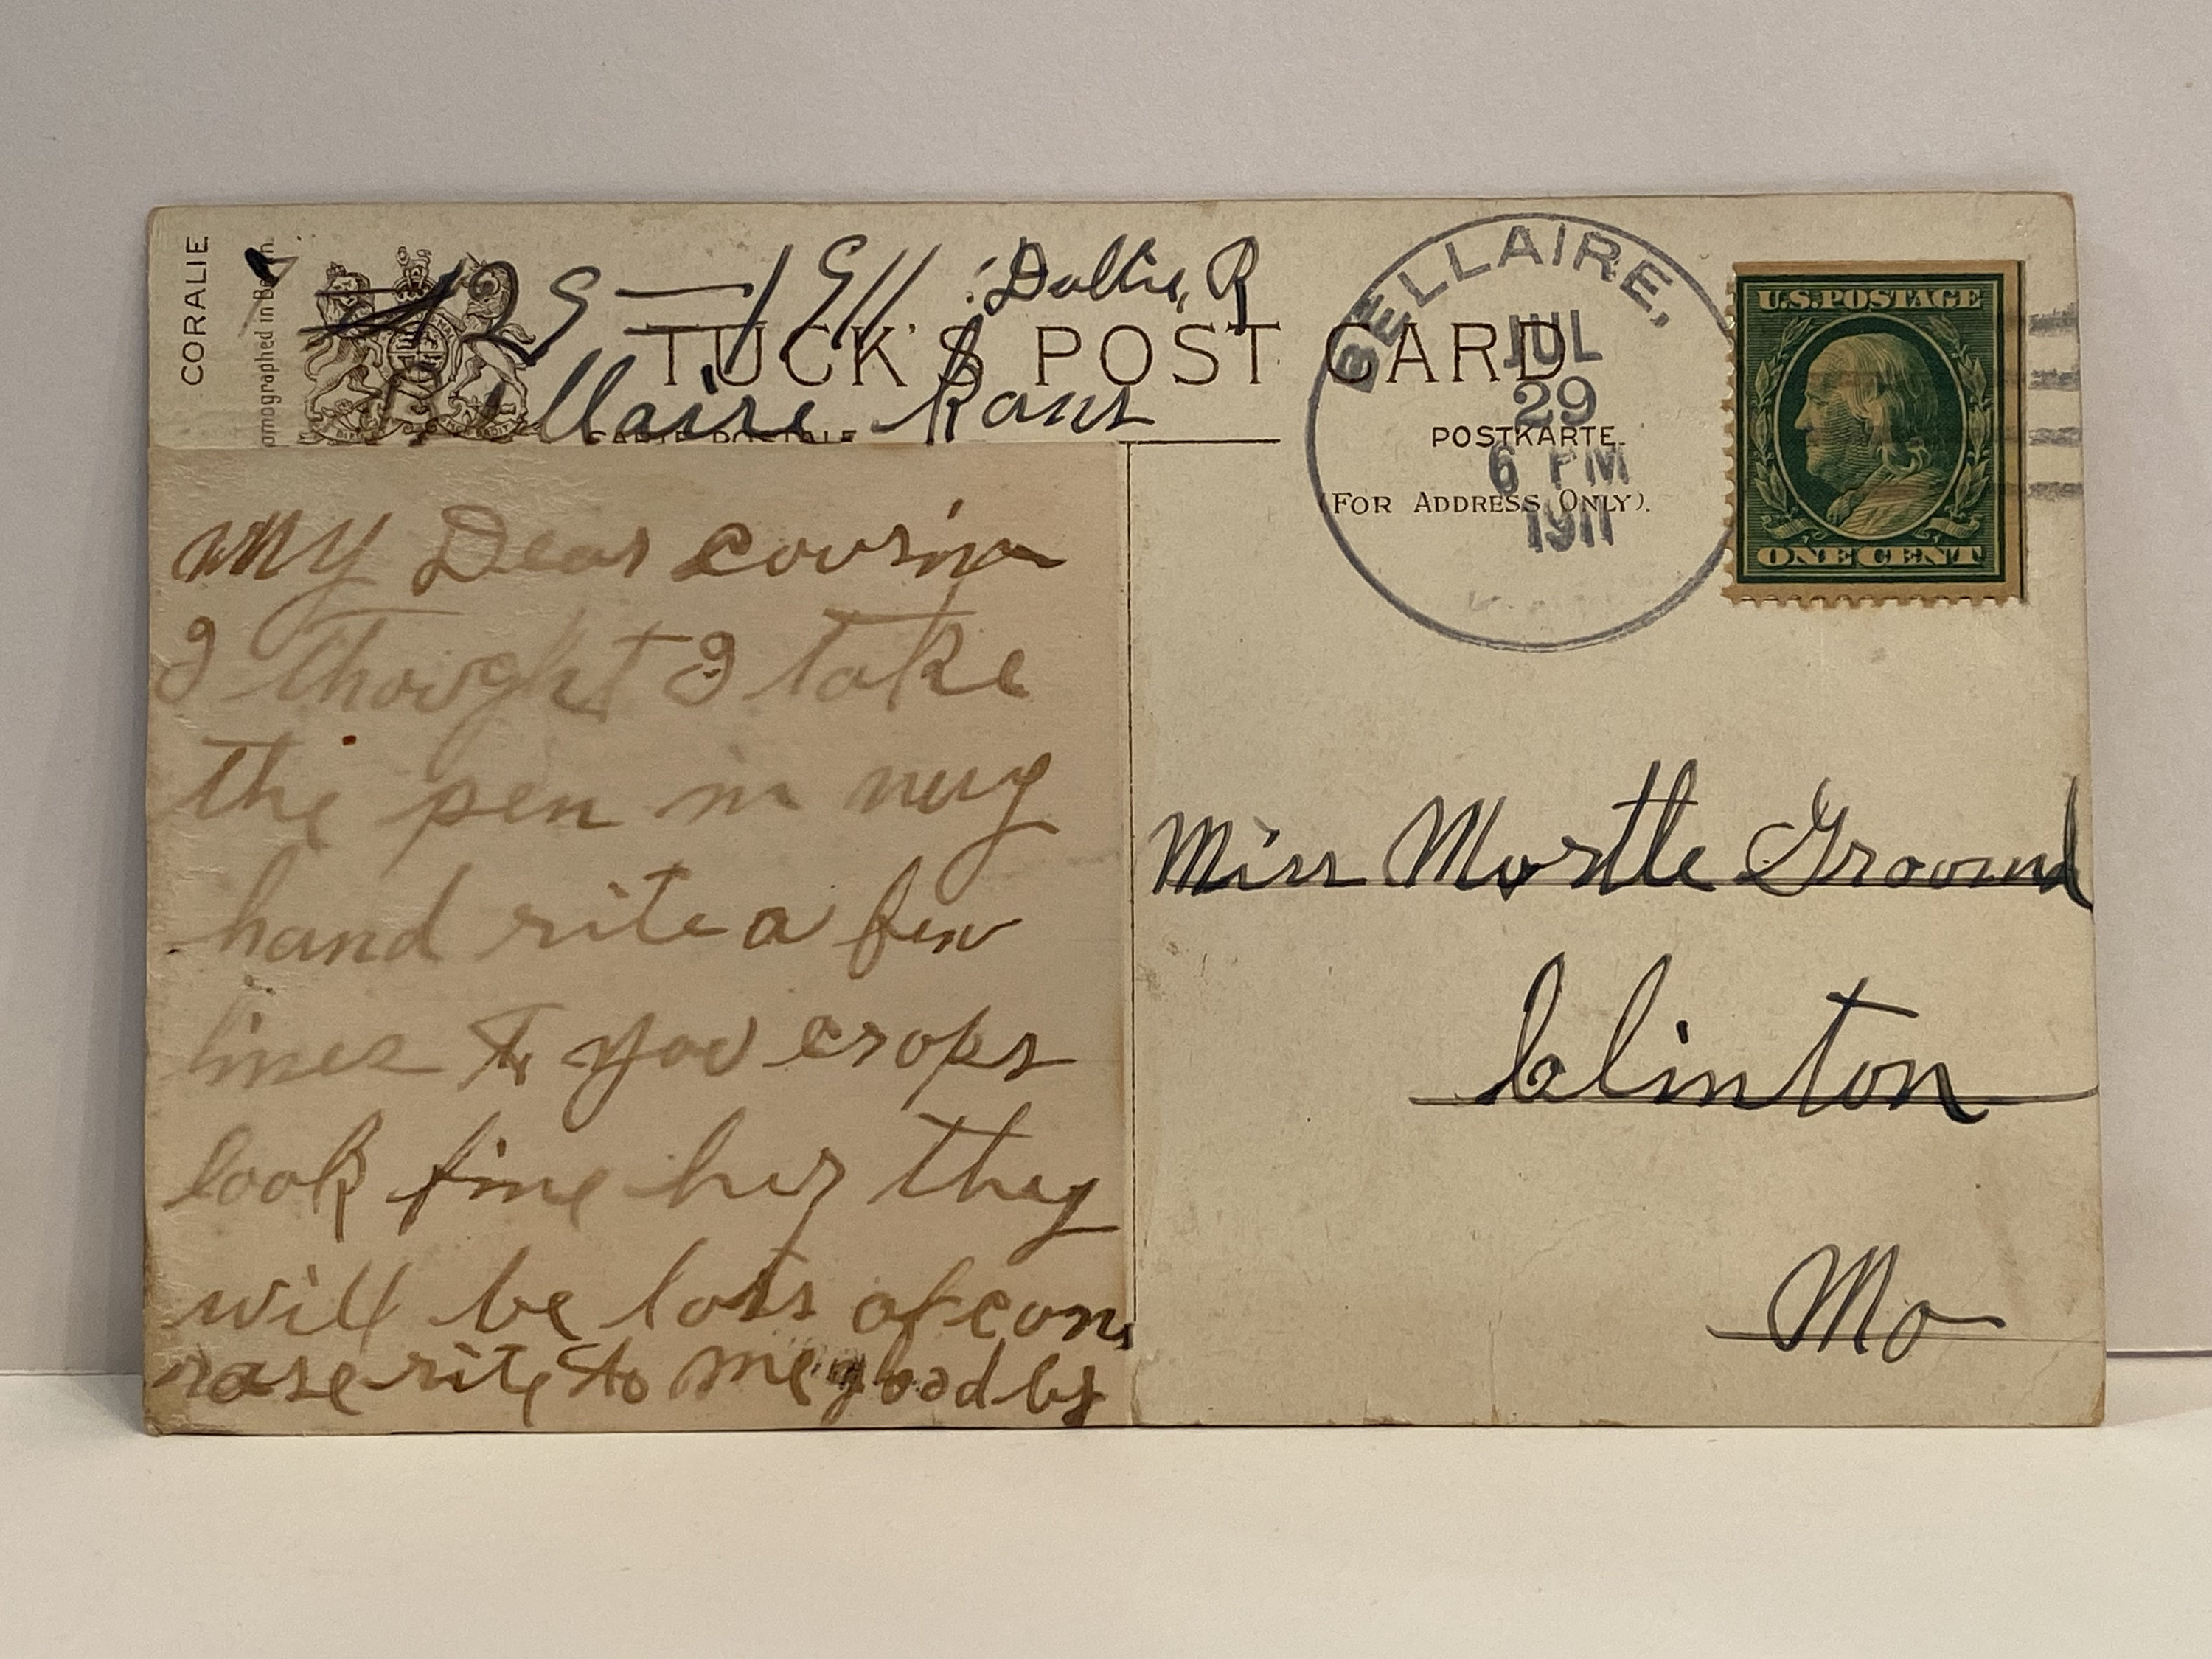 CORALIE
TUCK'S POST CARD
CARTE POSTALE
POSTKARTE.
(FOR ADDRESS ONLY).
1911 Dollie, R
Bellaire Kans
BELLAIRE,
JUL
29
6 PM
1911
U.S. POSTAGE
ONE CENT
My Dear cousin
I thought I take
the pen in my
hand rite a few
lines to you crops
look fine her they
will be lots of corn
rase rite to me good by
Miss Mostle Groound
Clinton
Mo